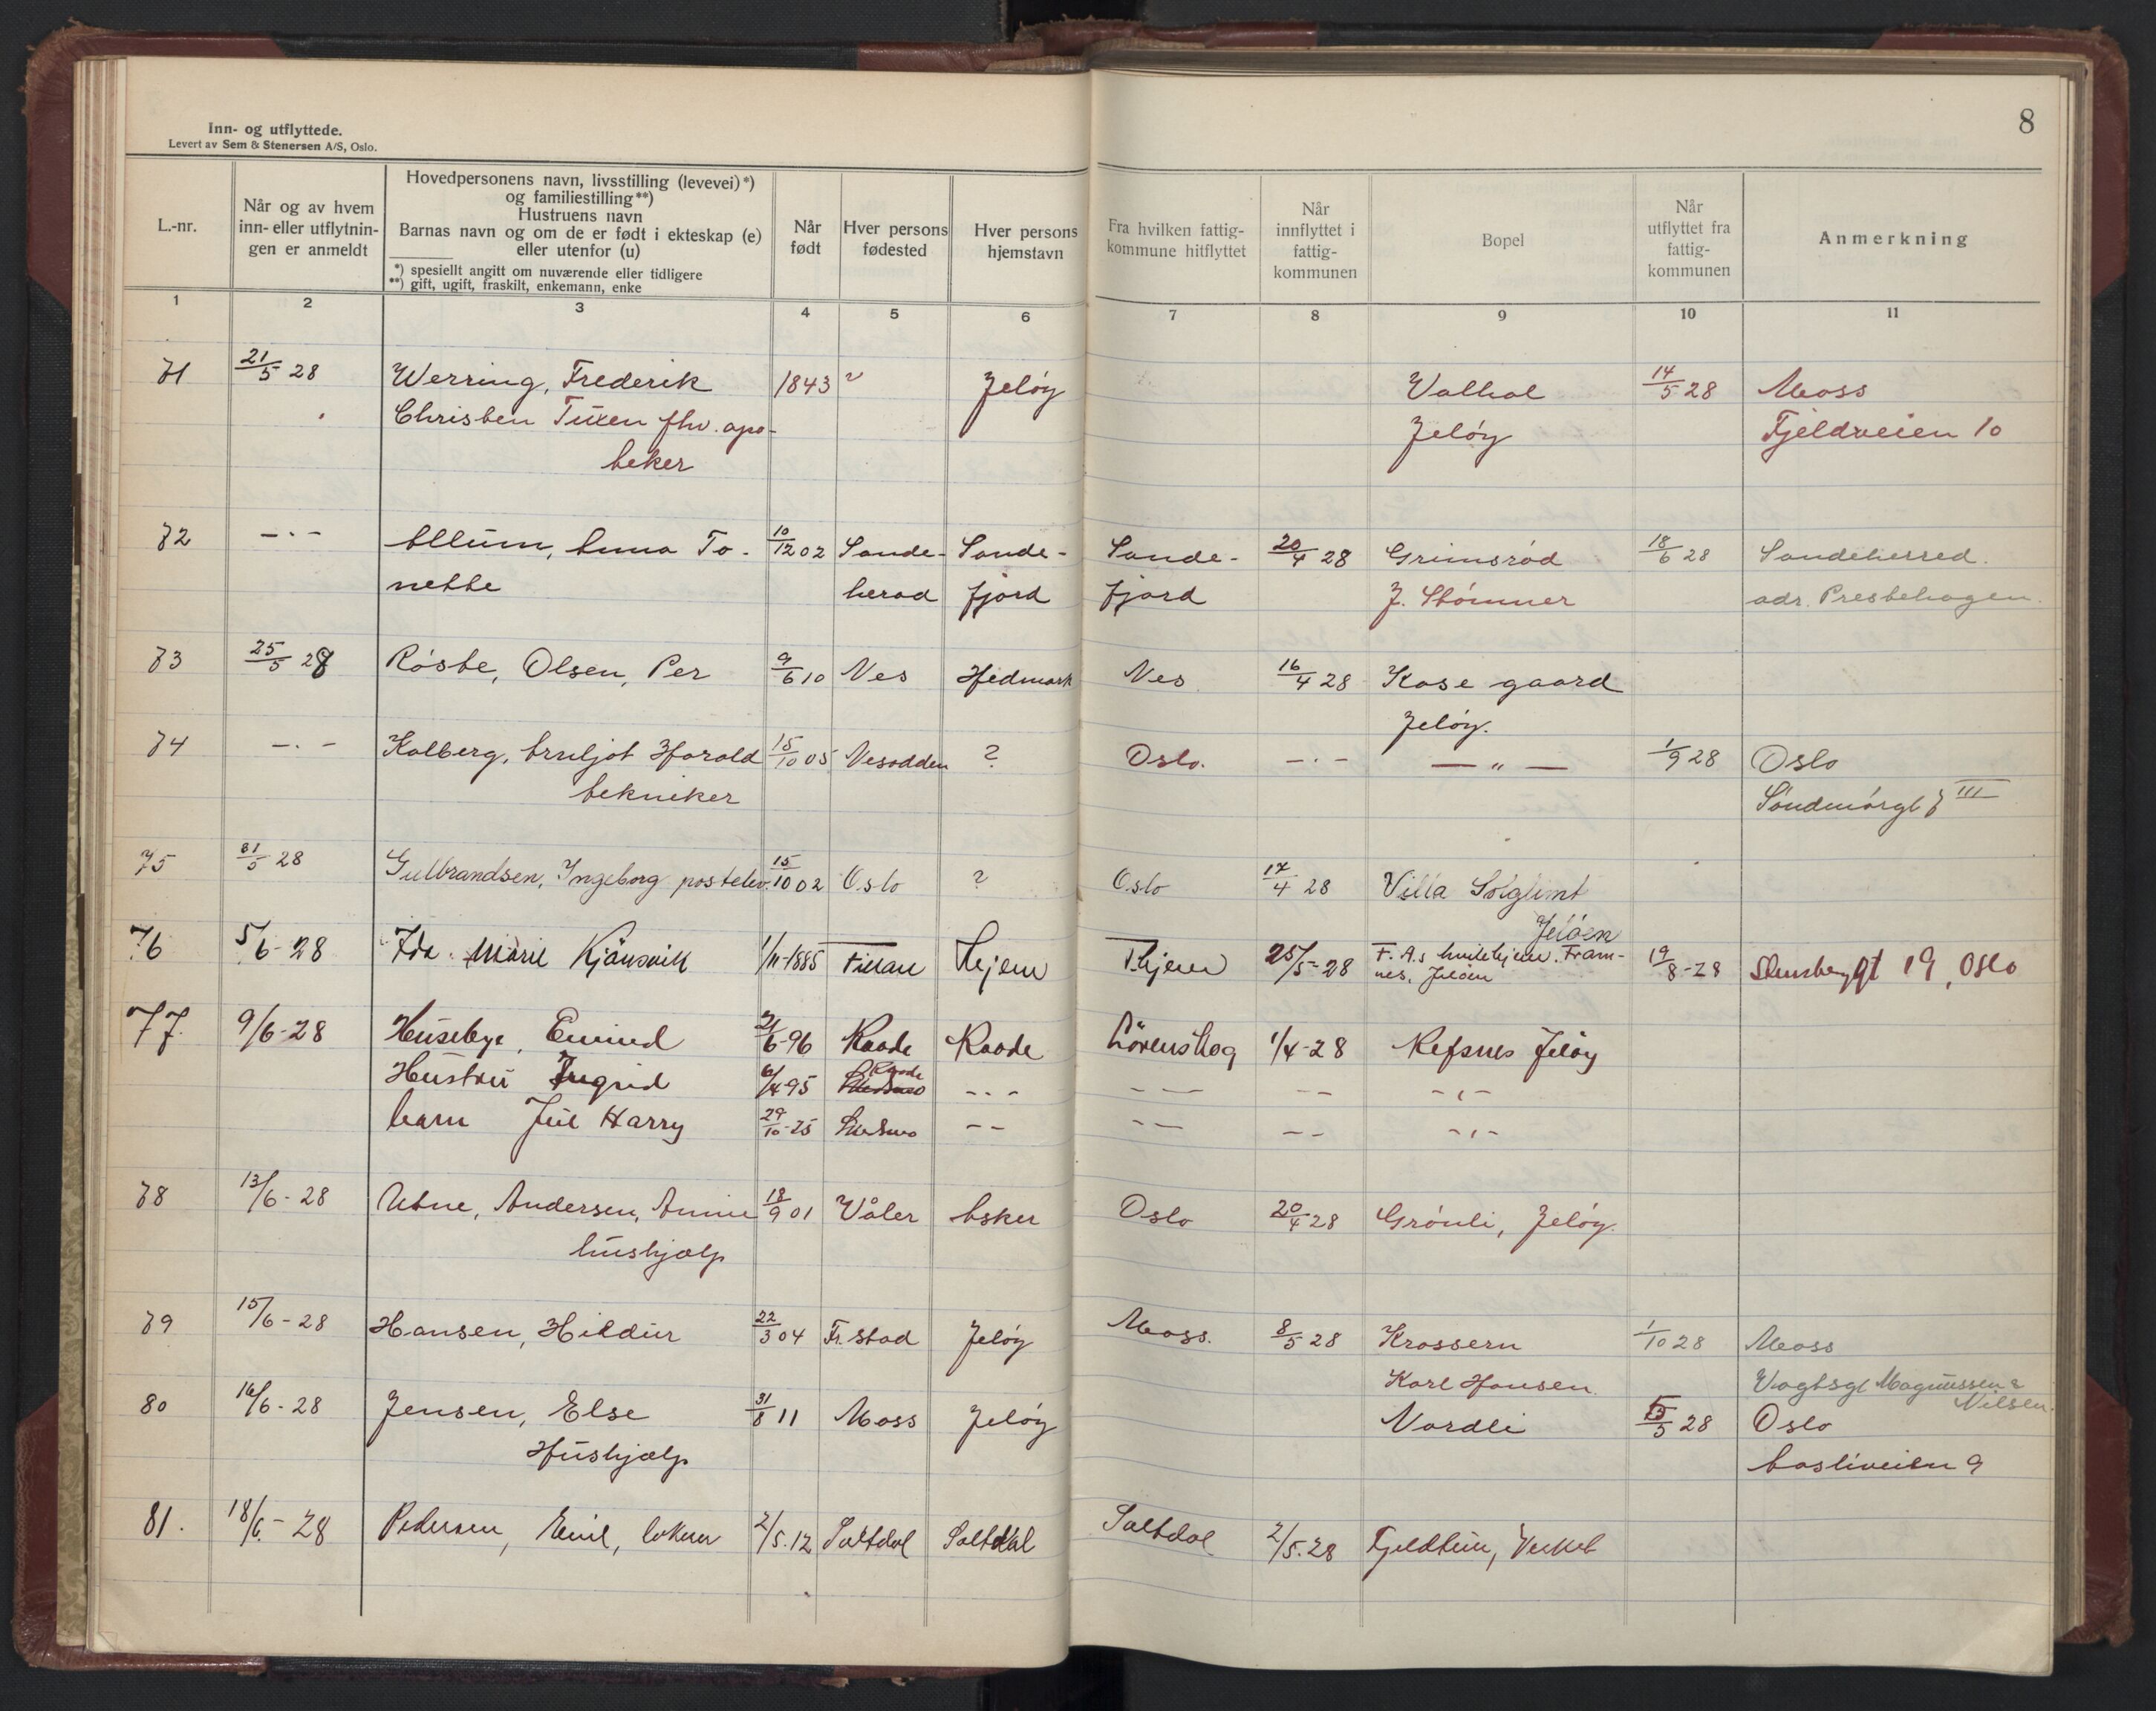 8
Inn- og utflyttede.
Levert av Sem & Stenersen A/S, Oslo.
L.-nr.
Når og av hvem
inn- eller utflytnin-
gen er anmeldt
Hovedpersonens navn, livsstilling (levevei)*)
og familiestilling**)
Hustruens navn
Barnas navn og om de er født i ekteskap (e)
eller utenfor (u)
*) spesiellt angitt om nuværende eller tidligere
**) gift, ugift, fraskilt, enkemann, enke
Når
født
Hver persons
fødested
Hver persons
hjemstavn
Fra hvilken fattig-
kommune hitflyttet
Når
innflyttet i
fattig-
kommunen
Bopel
Når
utflyttet fra
fattig-
kommunen
Anmerkning
1 2 3 4 5 6 7 8 9 10 11
71 21/5 28 Werring, Frederik 1843 ? Jeløy Valhal 14/5 28 Moss
Christen Tuxen fhv. apo- Jeløy Fjeldveien 10
teker
72 -·- Allum, Anna To- 10/12 02 Sande- Sande- Sande- 20/4 28 Grimsrød 18/6 28 Sandeherred.
nette herad fjord fjord J. Stømner adr. Prestehagen.
73 25/5 28 Røste, Olsen, Per 9/6 10 Ves Hedmark Ves 16/4 28 Kase gaard
Jeløy.
74 -·- Kolberg, Arnljot Harald 15/10 05 Nesodden ? Oslo. -·- - " - 1/9 28 Oslo
tekniker Søndmørgt 7 III
75 31/5 28 Gulbrandsen, Ingeborg postelev. 15/10 02 Oslo ? Oslo 17/4 28 Villa Solglimt
Jeløen
76 5/6-28 Ida Marie Kjønsvik 1/11-1885 Fillan Hejem Thjem 25/5-28 F. A.s hvilehjem. Fram- 19/8-28 Stensbergt 19, Oslo
nes, Jeløen
77. 9/6-28 Husebye, Eivind 21/6-96 Raade Raade Lørenskog 1/4-28 Refsnes Jeløy
Hustru Ingrid 6/4 95 Raade -·- - - - - -,-
barn Juul Harry 29/10-25 - - - - - - -,-
78 13/6-28 Utne, Andersen, Annie 18/9 01 Våler Asker Oslo 20/4 28 Grønli, Jeløy.
hushjælp
79 15/6-28 Hansen, Hildur 22/3 04 Fr.stad Jeløy Moss. 8/5 28 Krossern 1/10 28 Moss
Karl Hansen. Vogtsgt Magnussen &
Nilsen.
80 16/6-28 Jensen, Else 31/8 11 Moss Jeløy Nordli 15/5 28 Oslo
Hushjælp Aasliveien 9
81. 18/6.-28 Pedersen, Emil, 2/5.12 Saltdal Saltdal Saltdal 2/5.28 Fjeldheim, Verket